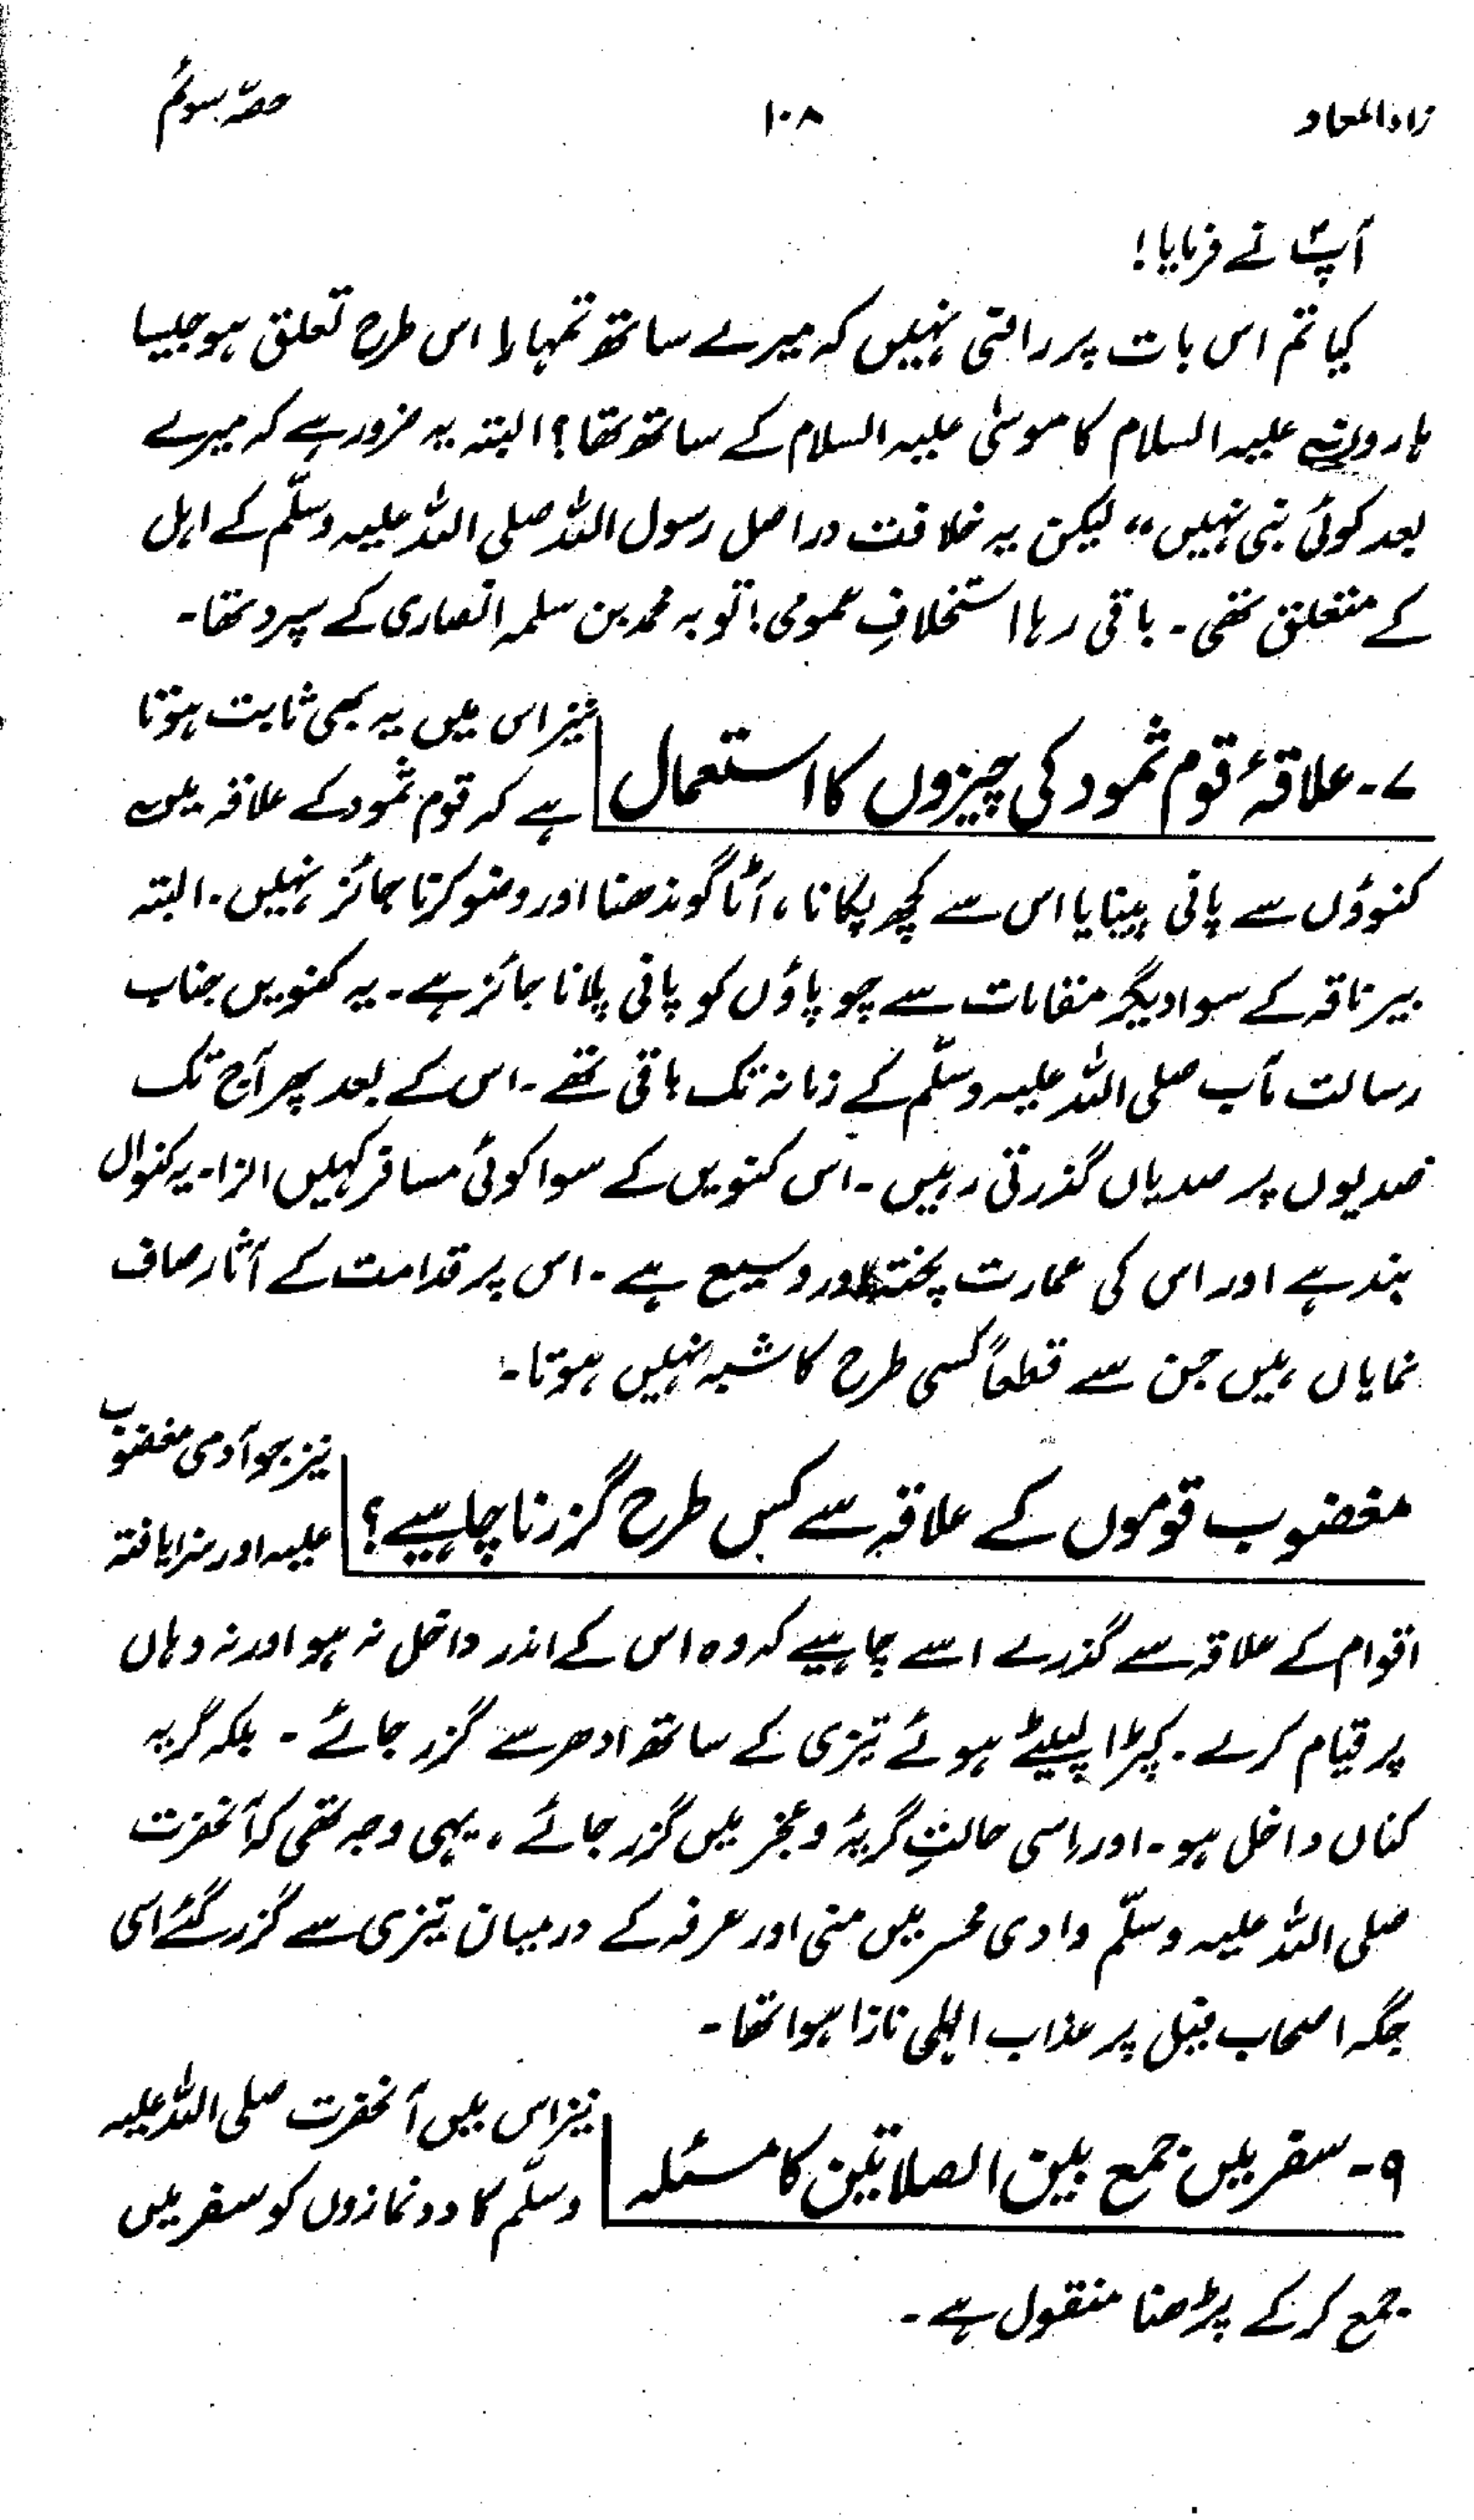 زاد المعاد ۱۰۸ حصہ سوئم
آپؐ نے فرمایا!
کیا تم اس بات پر راضی نہیں کہ میرے ساتھ تمہارا اس طرح تعلق ہو جیسا
ہارون علیہ السلام کا موسیٰ علیہ السلام کے ساتھ تھا؟ البتہ یہ ضرور ہے کہ میرے
بعد کوئی نبی نہیں،، لیکن یہ خلافت دراصل رسول اللہ صلی اللہ علیہ وسلّم کے اہل
کے متعلق تھی۔ باقی رہا استخلافِ عمومی! تو یہ محمد بن سلمہ انصاری کے سپرد تھا۔
۷۔ علاقۂ قوم ثمود کی چیزوں کا استعمال
نیز اس میں یہ بھی ثابت ہوتا
ہے کہ قوم ثمود کے علاقہ میں
کنوؤں سے پانی پینا یا اس سے کچھ پکانا، آٹا گوندھنا اور وضو کرنا جائز نہیں۔ البتہ
بیر ناقہ کے سوا دیگر مقامات سے چوپاؤں کو پانی پلانا جائز ہے۔ یہ کنویں جناب
رسالت مآب صلی اللہ علیہ وسلّم کے زمانہ تک باقی تھے۔ اس کے بعد پھر آج تک
صدیوں پر صدیاں گذرتی رہیں۔ اس کنویں کے سوا کوئی مسافر کہیں اترا۔ یہ کنواں
بند ہے اور اس کی عمارت پختہ اور وسیع ہے۔ اس پر قدامت کے آثار صاف
نمایاں ہیں جن سے قطعاً کسی طرح کا شبہ نہیں ہوتا۔
مغضوب قوموں کے علاقہ سے کس طرح گزرنا چاہیے؟
نیز جو آدمی مغضوب
علیہ اور سزا یافتہ
اقوام کے علاقہ سے گذرے اسے چاہیے کہ وہ اس کے اندر داخل نہ ہو اور نہ وہاں
پر قیام کرے۔ کپڑا لپیٹے ہوئے تیزی کے ساتھ ادھر سے گزر جائے۔ بلکہ گریہ
کناں داخل ہو۔ اور اسی حالتِ گریۂ و عجز میں گزر جائے، یہی وجہ تھی کہ آنحضرت
صلی اللہ علیہ وسلّم وادی محسر میں منی اور عرفہ کے درمیان تیزی سے گزر گئے اسی
جگہ اصحاب فیل پر عذاب الٰہی نازا ہوا تھا۔
۹۔ سفر میں جمع بین الصلاتین کا مسئلہ
نیز اس میں آنحضرت صلی اللہ علیہ
وسلّم کا دو نمازوں کو سفر میں
جمع کر کے پڑھنا منقول ہے۔